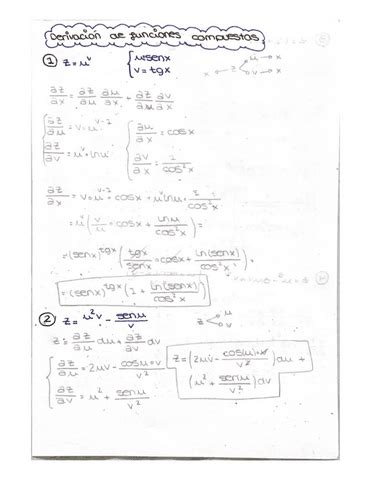 Derivación de funciones compuestas
① z = u^v { u = sen x
v = tg x
x z u x
v x
∂z/∂x = ∂z/∂u ∂u/∂x + ∂z/∂v ∂v/∂x
{ ∂z/∂u = v·u^(v-1) { ∂u/∂x = cos x
∂z/∂v = u^v · ln u ∂v/∂x = 1/cos²x
∂z/∂x = v·u^(v-1) · cos x + u^v ln u · 1/cos²x =
= u^v ( v/u · cos x + ln u/cos²x ) =
= (sen x)^(tg x) ( tg x/sen x · cos x + ln(sen x)/cos²x ) =
= (sen x)^(tg x) ( 1 + ln(sen x)/cos²x )
② z = u²v - sen u/v z u
v
z = ∂z/∂u du + ∂z/∂v dv
{ ∂z/∂u = 2uv - cos u·v/v²
∂z/∂v = u² + sen u/v²
z = ( 2uv - cos(u)·v/v² ) du +
( u² + sen u/v² ) dv